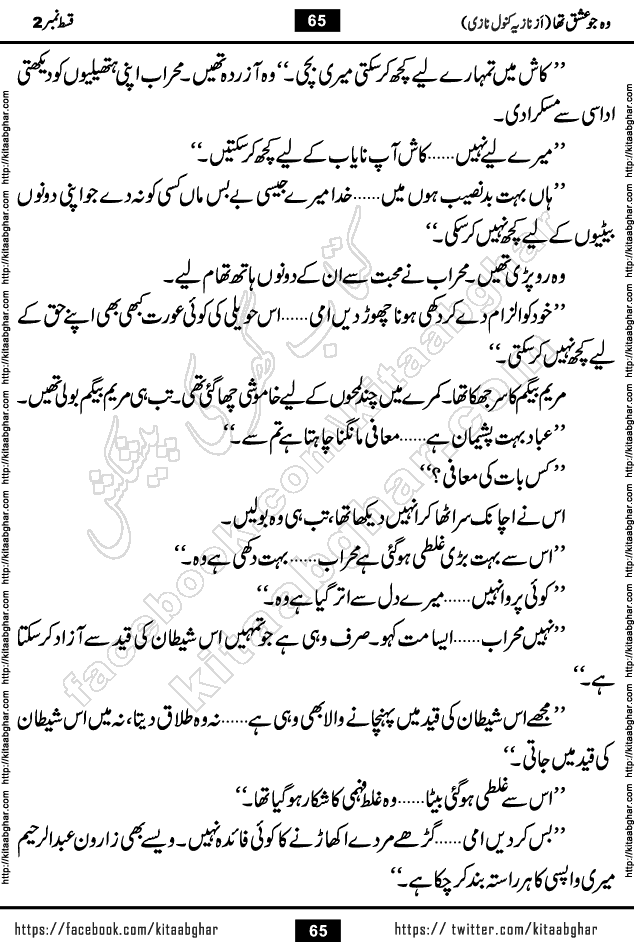 وہ جو عشق تھا (از نازیہ کنول نازی) 65 قسط نمبر 2
’’کاش میں تمہارے لیے کچھ کر سکتی میری بچی۔‘‘ وہ آزردہ تھیں۔ محراب اپنی ہتھیلیوں کو دیکھتی
اداسی سے مسکرا دی۔
’’میرے لیے نہیں......کاش آپ نایاب کے لیے کچھ کر سکتیں۔‘‘
’’ہاں بہت بدنصیب ہوں میں......خدا میرے جیسی بے بس ماں کسی کو نہ دے جو اپنی دونوں
بیٹیوں کے لیے کچھ نہیں کر سکی۔‘‘
وہ رو پڑی تھیں۔ محراب نے محبت سے ان کے دونوں ہاتھ تھام لیے۔
’’خود کو الزام دے کر دکھی ہونا چھوڑ دیں امی......اس حویلی کی کوئی عورت کبھی بھی اپنے حق کے
لیے کچھ نہیں کر سکتی۔‘‘
مریم بیگم کا سر جھکا تھا۔ کمرے میں چند لمحوں کے لیے خاموشی چھا گئی تھی۔ تب ہی مریم بیگم بولی تھیں۔
’’عباد بہت پشیمان ہے......معافی مانگنا چاہتا ہے تم سے۔‘‘
’’کس بات کی معافی؟‘‘
اس نے اچانک سر اٹھا کر انہیں دیکھا تھا، تب ہی وہ بولیں۔
’’اس سے بہت بڑی غلطی ہو گئی ہے محراب......بہت دکھی ہے وہ۔‘‘
’’کوئی پروا نہیں......میرے دل سے اتر گیا ہے وہ۔‘‘
’’نہیں محراب......ایسا مت کہو۔ صرف وہی ہے جو تمہیں اس شیطان کی قید سے آزاد کر سکتا
ہے۔‘‘
’’مجھے اس شیطان کی قید میں پہنچانے والا بھی وہی ہے......نہ وہ طلاق دیتا، نہ میں اس شیطان
کی قید میں جاتی۔‘‘
’’اس سے غلطی ہو گئی بیٹا......وہ غلط فہمی کا شکار ہو گیا تھا۔‘‘
’’بس کر دیں امی......گڑھے مردے اکھاڑنے کا کوئی فائدہ نہیں۔ ویسے بھی زارون عبدالرحیم
میری واپسی کا ہر راستہ بند کر چکا ہے۔‘‘
کتاب گھر کی پیشکش
facebook.com/kitaabghar
kitaabghar.com
http://kitaabghar.com http://kitaabghar.com http://kitaabghar.com http://kitaabghar.com http://kitaabghar.com http://kitaabghar.com http://kitaabghar.com http://kitaabghar.com
http://kitaabghar.com http://kitaabghar.com http://kitaabghar.com http://kitaabghar.com http://kitaabghar.com http://kitaabghar.com http://kitaabghar.com http://kitaabghar.com
https://facebook.com/kitaabghar 65 https://twitter.com/kitaabghar